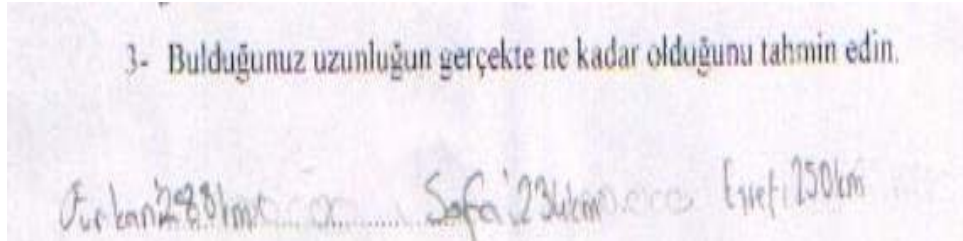 3- Bulduğunuz uzunluğun gerçekte ne kadar olduğunu tahmin edin.
Furkan 288km Safa: 234km : 250km